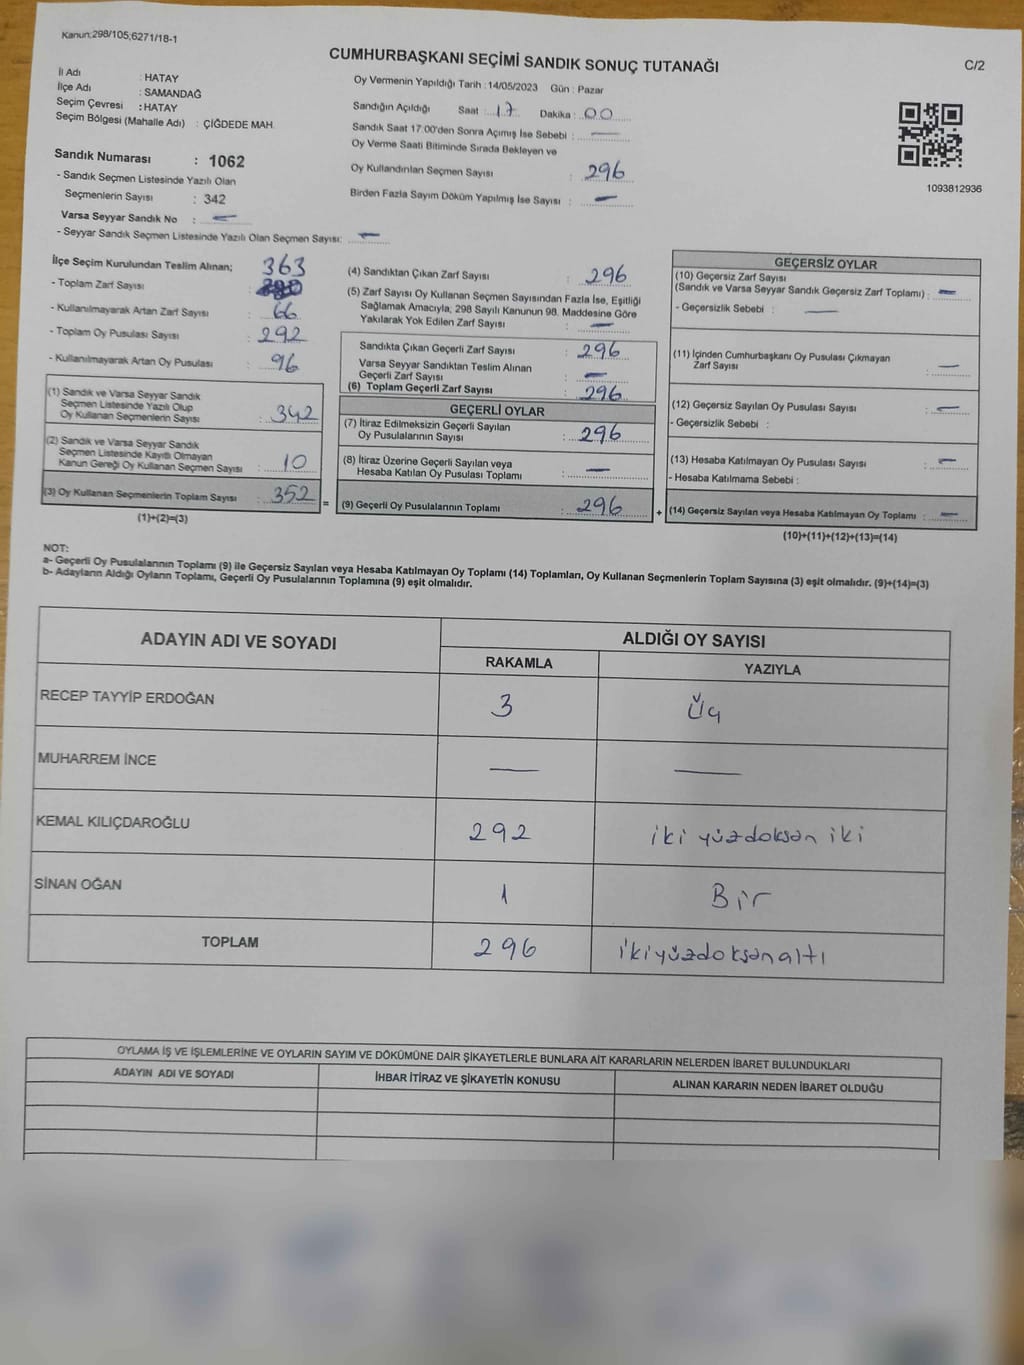 Kanun:298/105;6271/18-1
CUMHURBAŞKANI SEÇİMİ SANDIK SONUÇ TUTANAĞI
C/2
İl Adı : HATAY
İlçe Adı : SAMANDAĞ
Seçim Çevresi : HATAY
Seçim Bölgesi (Mahalle Adı) : ÇİĞDEDE MAH.
Oy Vermenin Yapıldığı Tarih :14/05/2023 Gün : Pazar
Sandığın Açıldığı Saat : 17 Dakika : 00
Sandık Saat 17.00'den Sonra Açımış İse Sebebi : —
Oy Verme Saati Bitiminde Sırada Bekleyen ve
Oy Kullandırılan Seçmen Sayısı : 296
Birden Fazla Sayım Döküm Yapılmış İse Sayısı : —
1093812936
Sandık Numarası : 1062
- Sandık Seçmen Listesinde Yazılı Olan
Seçmenlerin Sayısı : 342
Varsa Seyyar Sandık No : —
- Seyyar Sandık Seçmen Listesinde Yazılı Olan Seçmen Sayısı: —
İlçe Seçim Kurulundan Teslim Alınan; 363
- Toplam Zarf Sayısı :
- Kullanılmayarak Artan Zarf Sayısı : 66
- Toplam Oy Pusulası Sayısı : 292
- Kullanılmayarak Artan Oy Pusulası : 96
(1) Sandık ve Varsa Seyyar Sandık
Seçmen Listesinde Yazılı Olup
Oy Kullanan Seçmenlerin Sayısı : 342
(2) Sandık ve Varsa Seyyar Sandık
Seçmen Listesinde Kayıtlı Olmayan
Kanun Gereği Oy Kullanan Seçmen Sayısı : 10
(3) Oy Kullanan Seçmenlerin Toplam Sayısı : 352
(1)+(2)=(3)
=
(4) Sandıktan Çıkan Zarf Sayısı : 296
(5) Zarf Sayısı Oy Kullanan Seçmen Sayısından Fazla İse, Eşitliği
Sağlamak Amacıyla, 298 Sayılı Kanunun 98. Maddesine Göre
Yakılarak Yok Edilen Zarf Sayısı : —
Sandıkta Çıkan Geçerli Zarf Sayısı : 296
Varsa Seyyar Sandıktan Teslim Alınan
Geçerli Zarf Sayısı : —
(6) Toplam Geçerli Zarf Sayısı : 296
GEÇERLİ OYLAR
(7) İtiraz Edilmeksizin Geçerli Sayılan
Oy Pusulalarının Sayısı : 296
(8) İtiraz Üzerine Geçerli Sayılan veya
Hesaba Katılan Oy Pusulası Toplamı : —
(9) Geçerli Oy Pusulalarının Toplamı : 296
+
GEÇERSİZ OYLAR
(10) Geçersiz Zarf Sayısı
(Sandık ve Varsa Seyyar Sandık Geçersiz Zarf Toplamı) : —
- Geçersizlik Sebebi : —
(11) İçinden Cumhurbaşkanı Oy Pusulası Çıkmayan
Zarf Sayısı : —
(12) Geçersiz Sayılan Oy Pusulası Sayısı : —
- Geçersizlik Sebebi :
(13) Hesaba Katılmayan Oy Pusulası Sayısı : —
- Hesaba Katılmama Sebebi :
(14) Geçersiz Sayılan veya Hesaba Katılmayan Oy Toplamı : —
(10)+(11)+(12)+(13)=(14)
NOT:
a- Geçerli Oy Pusulalarının Toplamı (9) ile Geçersiz Sayılan veya Hesaba Katılmayan Oy Toplamı (14) Toplamları, Oy Kullanan Seçmenlerin Toplam Sayısına (3) eşit olmalıdır. (9)+(14)=(3)
b- Adayların Aldığı Oyların Toplamı, Geçerli Oy Pusulalarının Toplamına (9) eşit olmalıdır.
ADAYIN ADI VE SOYADI
ALDIĞI OY SAYISI
RAKAMLA YAZIYLA
RECEP TAYYİP ERDOĞAN 3 Üç
MUHARREM İNCE — —
KEMAL KILIÇDAROĞLU 292 iki yüzdoksan iki
SİNAN OĞAN 1 Bir
TOPLAM 296 ikiyüzdoksanaltı
OYLAMA İŞ VE İŞLEMLERİNE VE OYLARIN SAYIM VE DÖKÜMÜNE DAİR ŞİKAYETLERLE BUNLARA AİT KARARLARIN NELERDEN İBARET BULUNDUKLARI
ADAYIN ADI VE SOYADI İHBAR İTİRAZ VE ŞİKAYETİN KONUSU ALINAN KARARIN NEDEN İBARET OLDUĞU